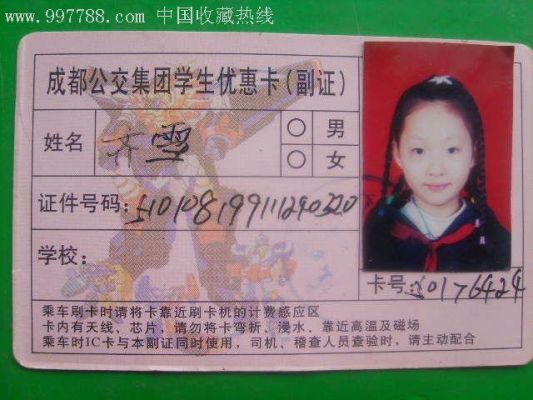 www.997788.com 中国收藏热线
成都公交集团学生优惠卡(副证)
姓名 齐雪 ○ 男
○ 女
证件号码: 510108199111290320
学校:
卡号: 30176424
乘车刷卡时请将卡靠近刷卡机的计费感应区
卡内有天线、芯片，请勿将卡弯折、浸水、靠近高温及磁场
乘车时IC卡与本副证同时使用，司机、稽查人员查验时，请主动配合